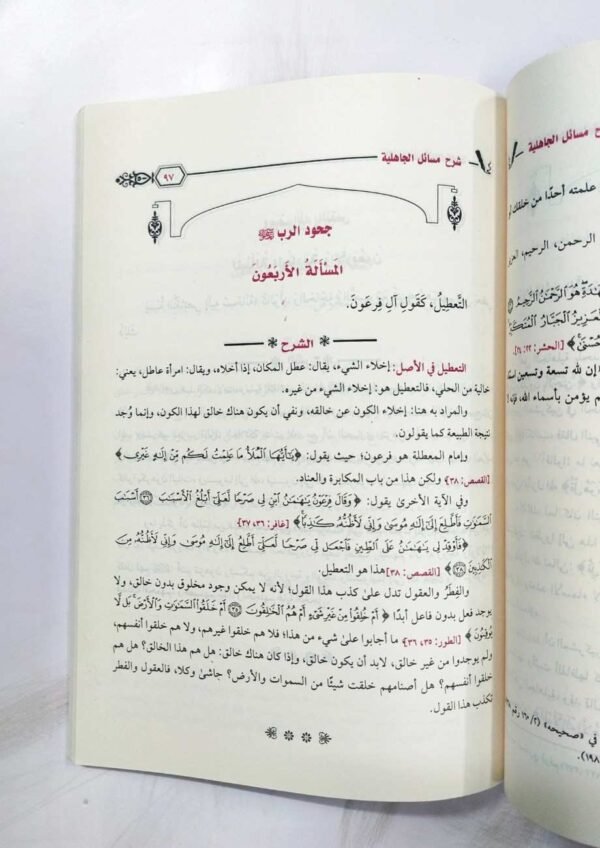 شرح مسائل الجاهلية
٩٧
جحود الرب ﷻ
المَسْأَلَةُ الأَرْبَعُونَ
التَّعطِيلُ، كَقَولِ آلِ فِرعَونَ.
الشرح
التعطيل في الأصل: إخلاء الشيء، يقال: عطل المكان، إذا أخلاه، ويقال: امرأة عاطل، يعني:
خالية من الحلي، فالتعطيل هو: إخلاء الشيء من غيره.
والمراد به هنا: إخلاء الكون عن خالقه، ونفي أن يكون هناك خالق لهذا الكون، وإنما وُجد
نتيجة الطبيعة كما يقولون.
وإمام المعطلة هو فرعون؛ حيث يقول: ﴿يَٰٓأَيُّهَا ٱلْمَلَأُ مَا عَلِمْتُ لَكُم مِّنْ إِلَٰهٍ غَيْرِى﴾
[القصص: ٣٨] ولكن هذا من باب المكابرة والعناد.
وفي الآية الأخرىٰ يقول: ﴿وَقَالَ فِرْعَوْنُ يَٰهَٰمَٰنُ ٱبْنِ لِى صَرْحًا لَّعَلِّىٓ أَبْلُغُ ٱلْأَسْبَٰبَ ۝٣٦ أَسْبَٰبَ
ٱلسَّمَٰوَٰتِ فَأَطَّلِعَ إِلَىٰٓ إِلَٰهِ مُوسَىٰ وَإِنِّى لَأَظُنُّهُۥ كَٰذِبًا﴾ [غافر: ٣٦، ٣٧]
﴿فَأَوْقِدْ لِى يَٰهَٰمَٰنُ عَلَى ٱلطِّينِ فَٱجْعَل لِّى صَرْحًا لَّعَلِّىٓ أَطَّلِعُ إِلَىٰٓ إِلَٰهِ مُوسَىٰ وَإِنِّى لَأَظُنُّهُۥ مِنَ
ٱلْكَٰذِبِينَ ۝٣٨﴾ [القصص: ٣٨] هذا هو التعطيل.
والفِطَرُ والعقول تدل علىٰ كذب هذا القول؛ لأنه لا يمكن وجود مخلوق بدون خالق، ولا
يوجد فعل بدون فاعل أبدًا ﴿أَمْ خُلِقُوا۟ مِنْ غَيْرِ شَىْءٍ أَمْ هُمُ ٱلْخَٰلِقُونَ ۝٣٥ أَمْ خَلَقُوا۟ ٱلسَّمَٰوَٰتِ وَٱلْأَرْضَ بَل لَّا
يُوقِنُونَ﴾ [الطور: ٣٥، ٣٦] ما أجابوا علىٰ شيء من هذا؛ فلا هم خلقوا غيرهم، ولا هم خلقوا أنفسهم،
ولم يوجدوا من غير خالق، لابد أن يكون خالق، وإذا كان هناك خالق: هل هم هذا الخالق؟ هل هم
خلقوا أنفسهم؟ هل أصنامهم خلقت شيئًا من السموات والأرض؟ حاشىٰ وكلا، فالعقول والفطر
تكذب هذا القول.
شرح مسائل الجاهلية
علمته أحدًا من خلقك
الرحمن، الرحيم،
هُوَ ٱلرَّحْمَٰنُ ٱلرَّحِيمُ
ٱلْعَزِيزُ ٱلْجَبَّارُ
[الحشر: ٢٢، ٢٤]
إن لله تسعة وتسعين
يؤمن بأسماء الله،
في «صحيحه» (٢/